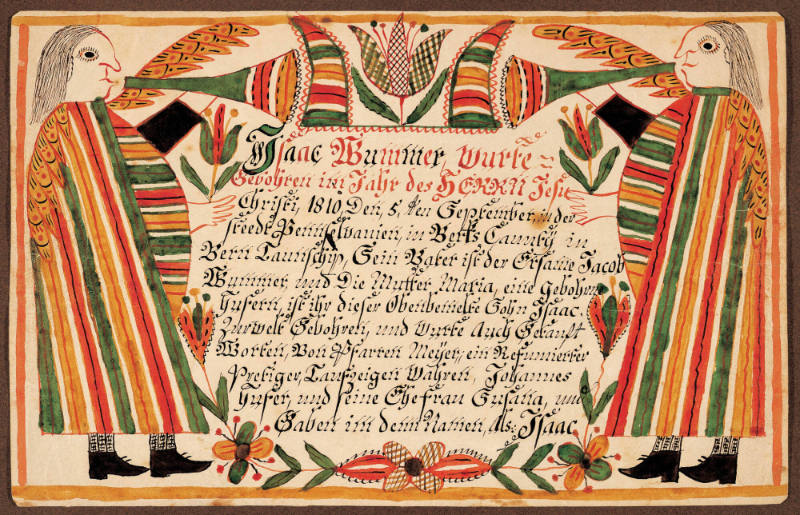 Isaac Wummer, wurte=
Gebohren im Jahr des HERRN Jesu
Christi, 1810, Den, 5, ten September, in der
steedt Pennselvanien, in Berks Caunty, in
Bern Taunschip, Sein Vater ist der Ersame Jacob
Wummer, und Die Mutter, Maria, eine Gebohrne
Hufern, ist ihr dieser Obenbemelte Sohn Isaac
Zur welt Gebohren, und wurte Auch Getauft
Worten, Von Pfarren Meÿer, ein Refunnirter
Prediger, Taufzeigen Wahren, Johannes
Hufer, und seine Ehefrau Susana, und
Gaben im dem Namen, als: Isaac